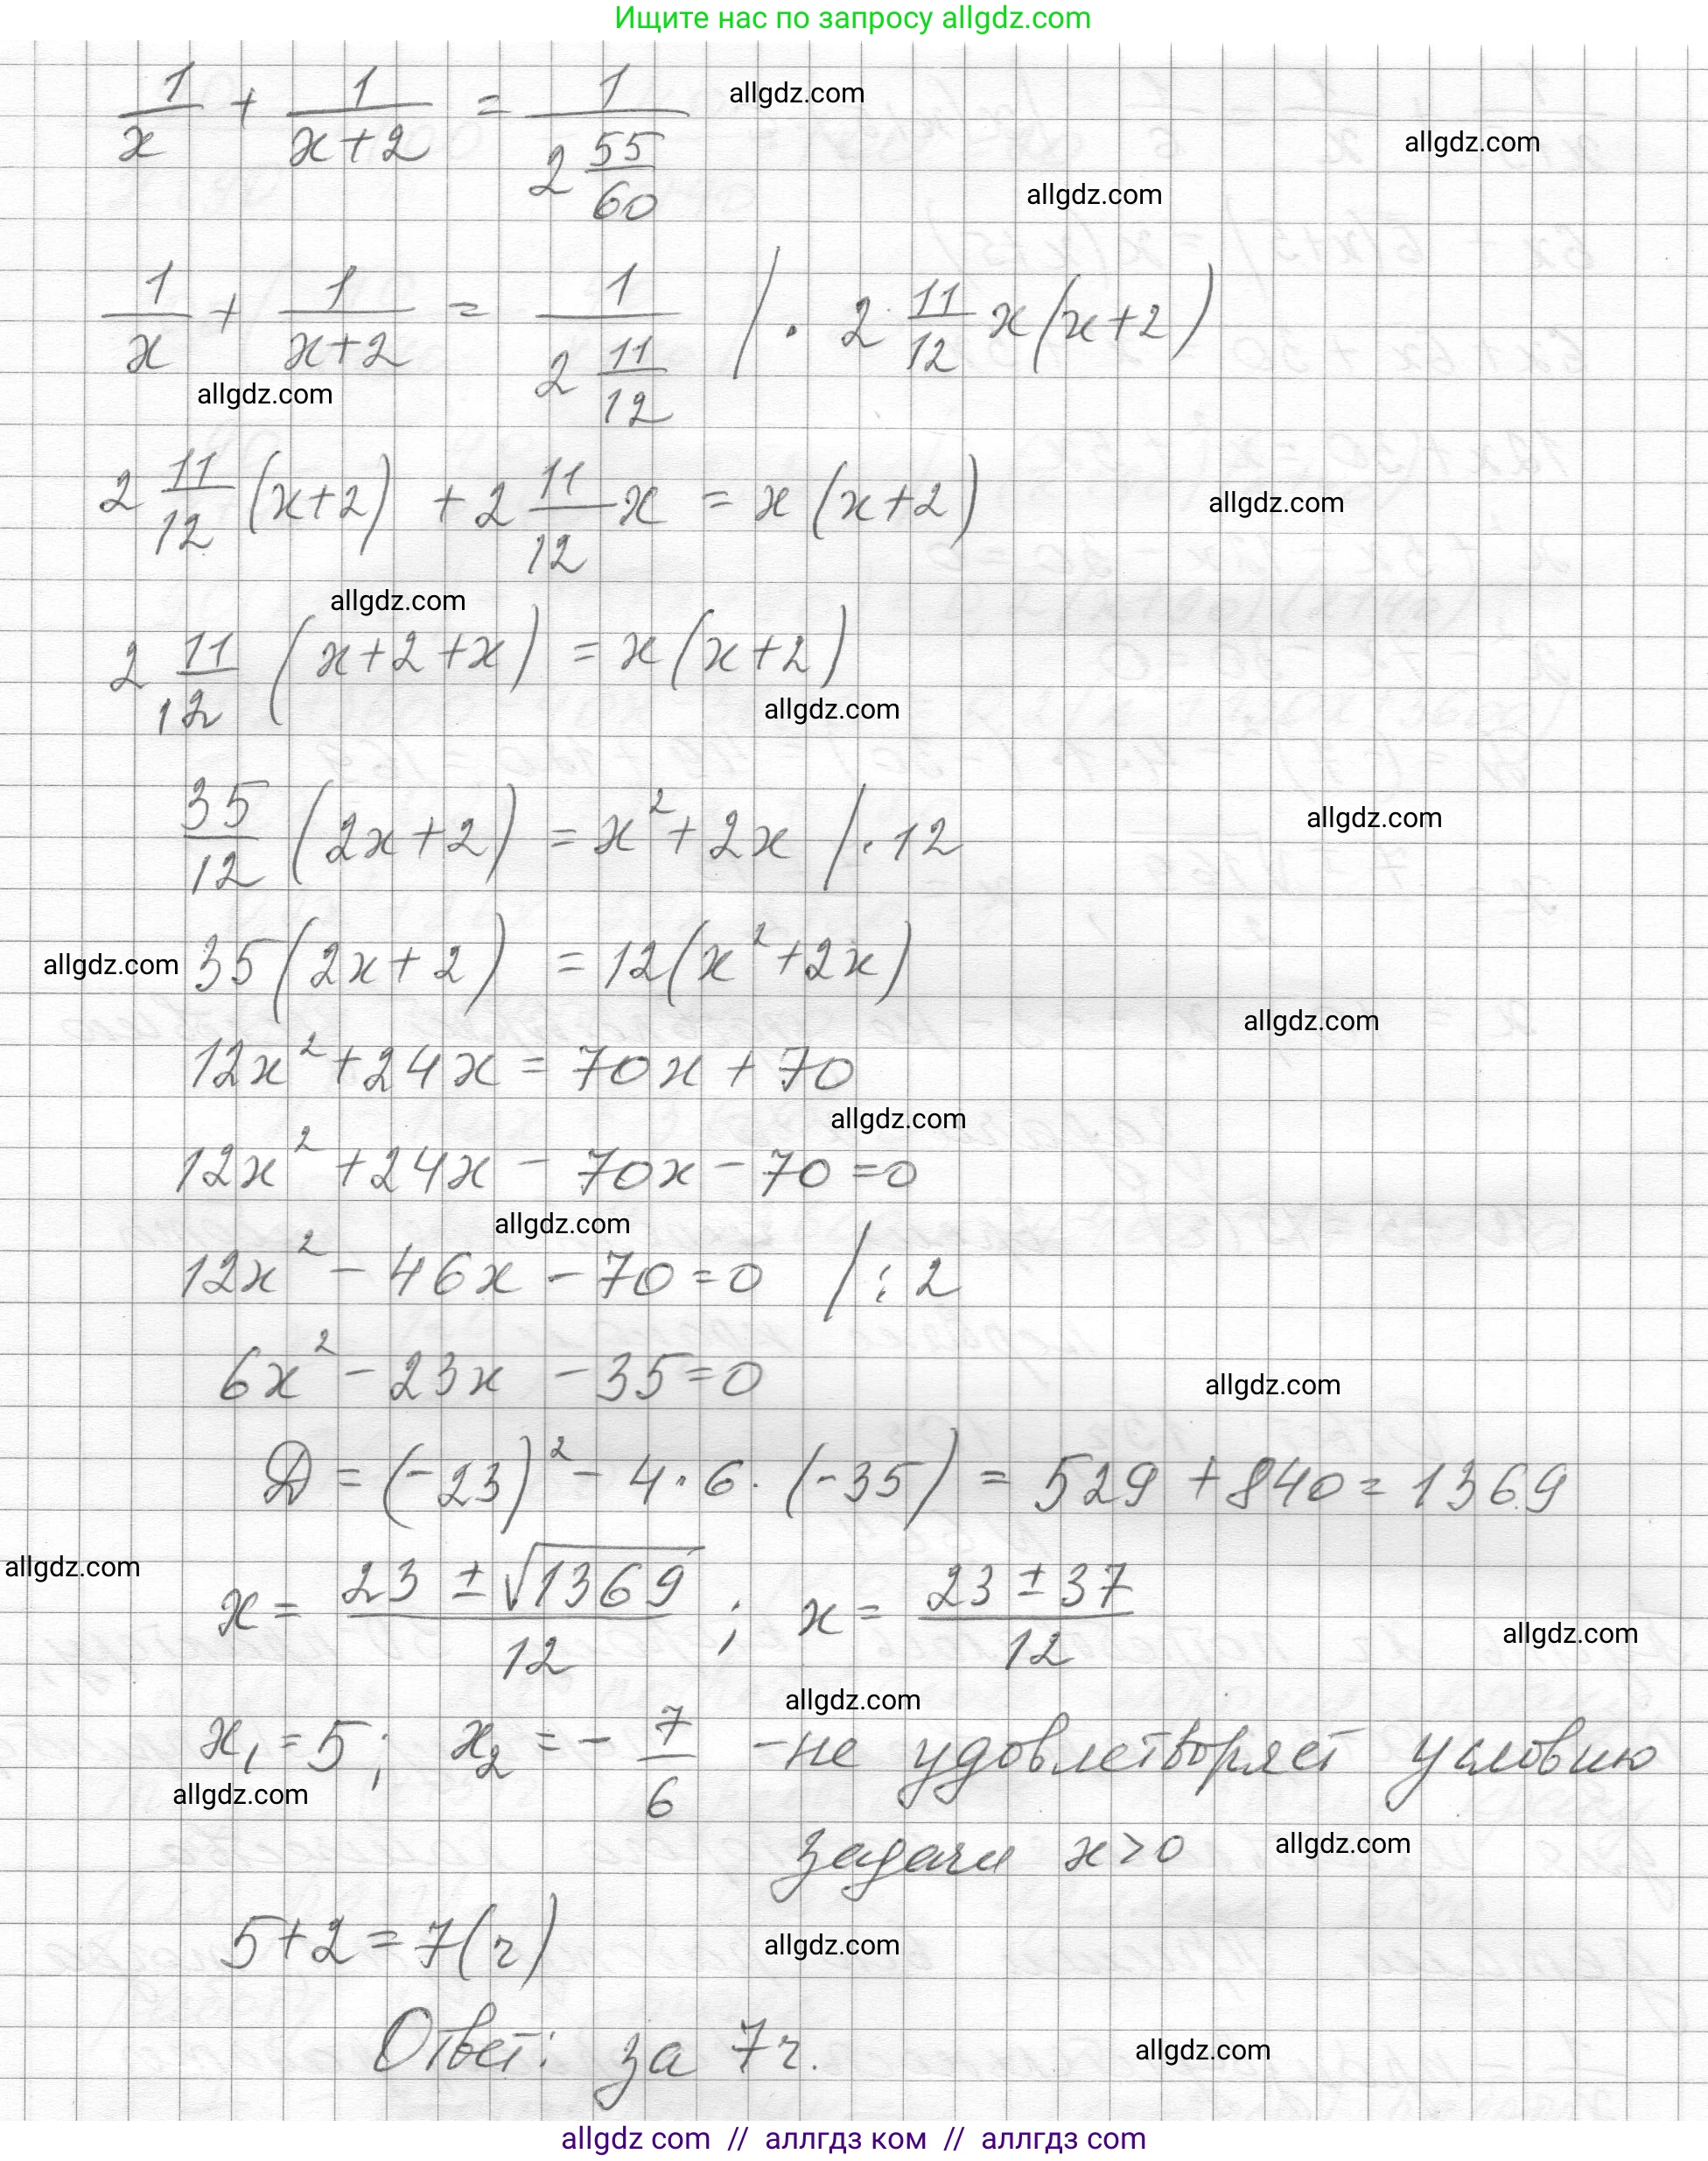 Ищите нас по запросу allgdz.com
1/x + 1/(x+2) = 1/(2 55/60)
allgdz.com
allgdz.com
allgdz.com
1/x + 1/(x+2) = 1/(2 11/12) / · 2 11/12 x(x+2)
allgdz.com
2 11/12 (x+2) + 2 11/12 x = x(x+2)
allgdz.com
allgdz.com
2 11/12 (x+2+x) = x(x+2)
allgdz.com
35/12 (2x+2) = x² + 2x / · 12
allgdz.com
allgdz.com
35(2x+2) = 12(x²+2x)
allgdz.com
12x² + 24x = 70x + 70
allgdz.com
12x² + 24x - 70x - 70 = 0
allgdz.com
12x² - 46x - 70 = 0 / : 2
6x² - 23x - 35 = 0
allgdz.com
D = (-23)² - 4 · 6 · (-35) = 529 + 840 = 1369
allgdz.com
x = (23 ± √1369)/12 ; x = (23 ± 37)/12
allgdz.com
allgdz.com
x₁ = 5; x₂ = - 7/6 - не удовлетворяет условию
allgdz.com
задачи x > 0
allgdz.com
5 + 2 = 7 (ч)
allgdz.com
Ответ: за 7 ч.
allgdz.com
allgdz com // аллгдз ком // аллгдз com